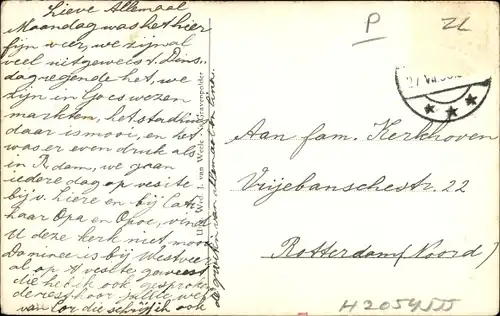 Lieve Allemaal
Maandag was het hier
fijn weer, we zijn al
veel uitgeweest. Dins-
dag regende het, we
zijn in Goes wezen
markten, het stadhuis
daar is mooi, en het
was er even druk als
in R.dam, we gaan
iedere dag op vesite
bij v. Liere en bij Cath
haar Opa en Opoe, vind
U deze kerk niet mooi
Dominee is bij Westveer
al op vesite geweest
die heb ik ook gesproken
de rest hoor jullie wel
van Cor die schrijf ik ook
de groeten van allemaal
Uitg. Wed. J. van Weele 's-Gravenpolder
P
ZL
27 VII
Aan fam. Kerkhoven
Vrijebanschestr. 22
Rotterdam (Noord)
H2054